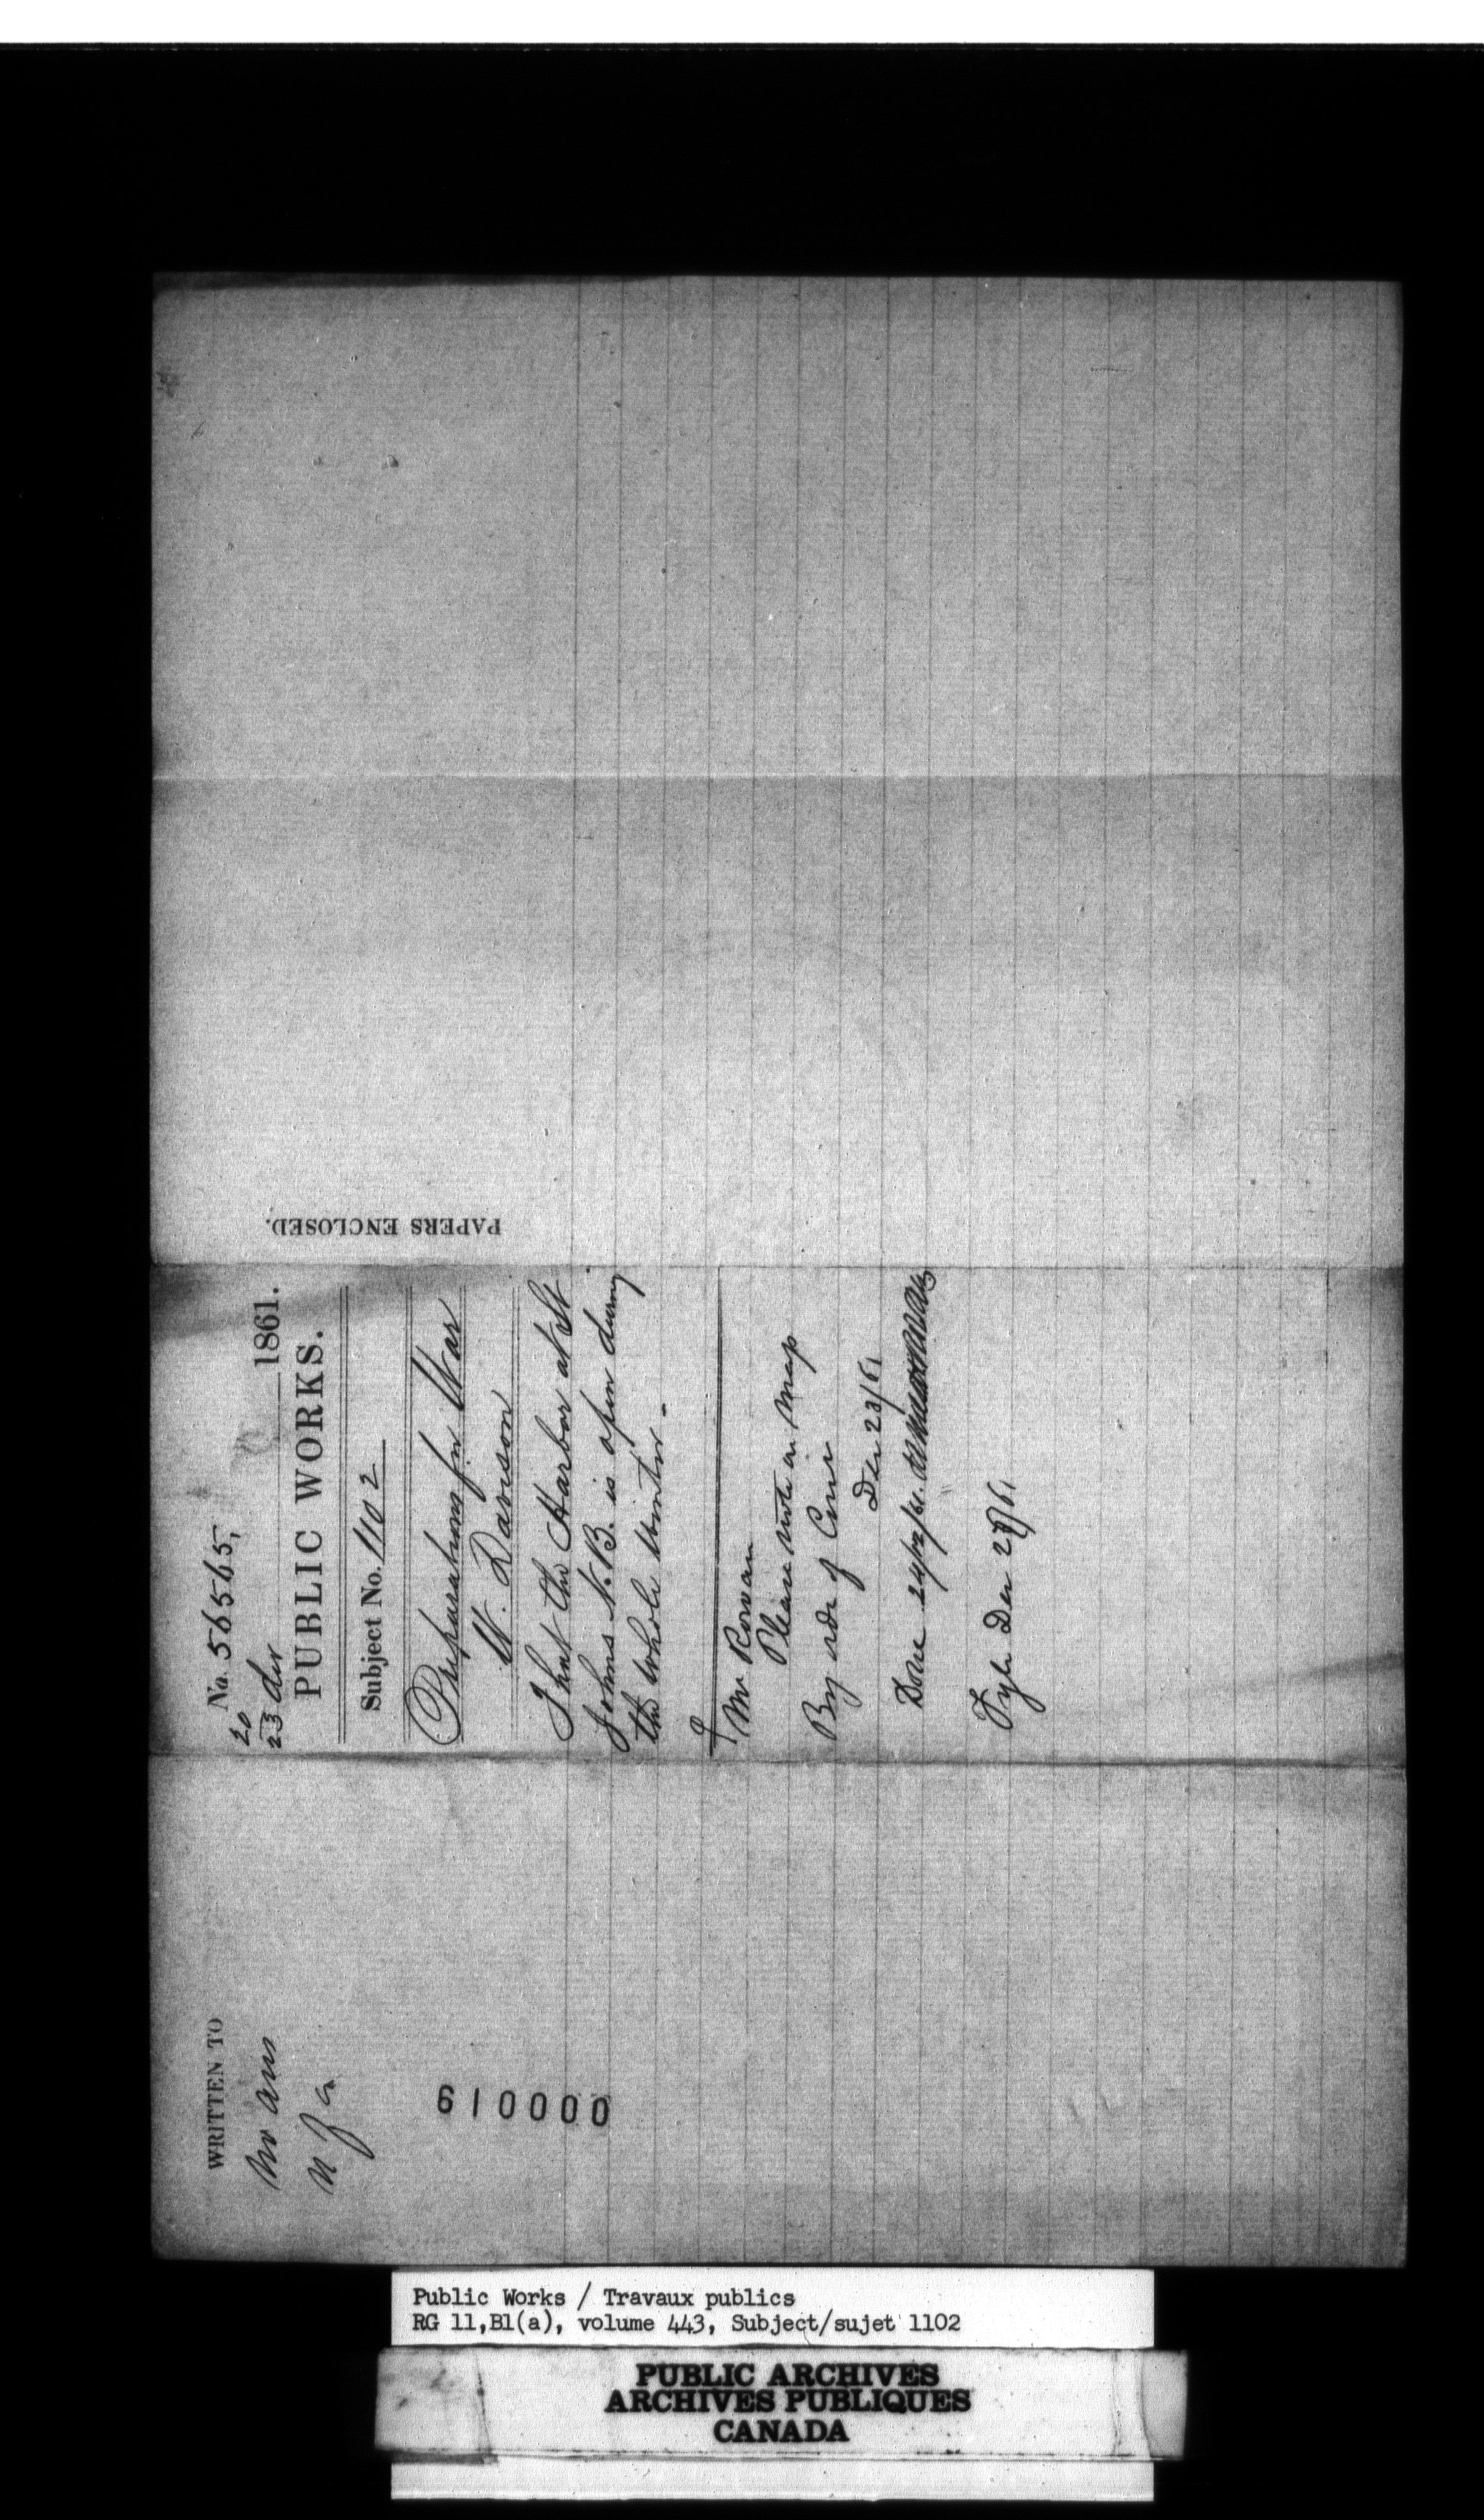 No. 56565,
20
23 dec
1861.
PUBLIC WORKS.
Subject No. 1102
Preparations for War
W. Davison
That the Harbor at St
Johns N.B. is open during
the whole Winter -
Mr Rowan
Please note on Map
By order of
Dec 23/61
Done 24/12/61.
Fyle Dec 28/61
PAPERS ENCLOSED.
WRITTEN TO
no ans
n f a
610000
Public Works / Travaux publics
RG 11,B1(a), volume 443, Subject/sujet 1102
PUBLIC ARCHIVES
ARCHIVES PUBLIQUES
CANADA